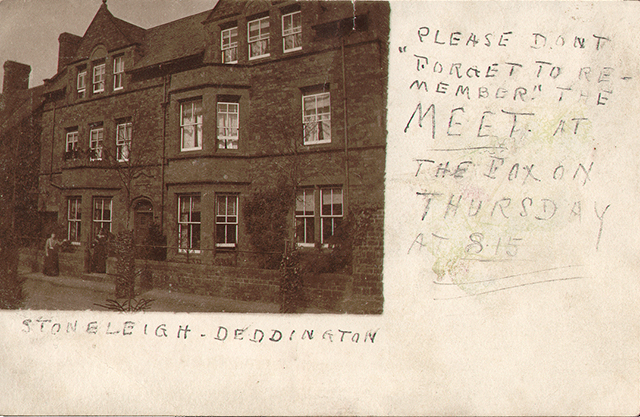 PLEASE DONT
"FORGET TO RE-
MEMBER." THE
MEET. AT
THE FOX ON
THURSDAY
AT 8.15
STONELEIGH - DEDDINGTON